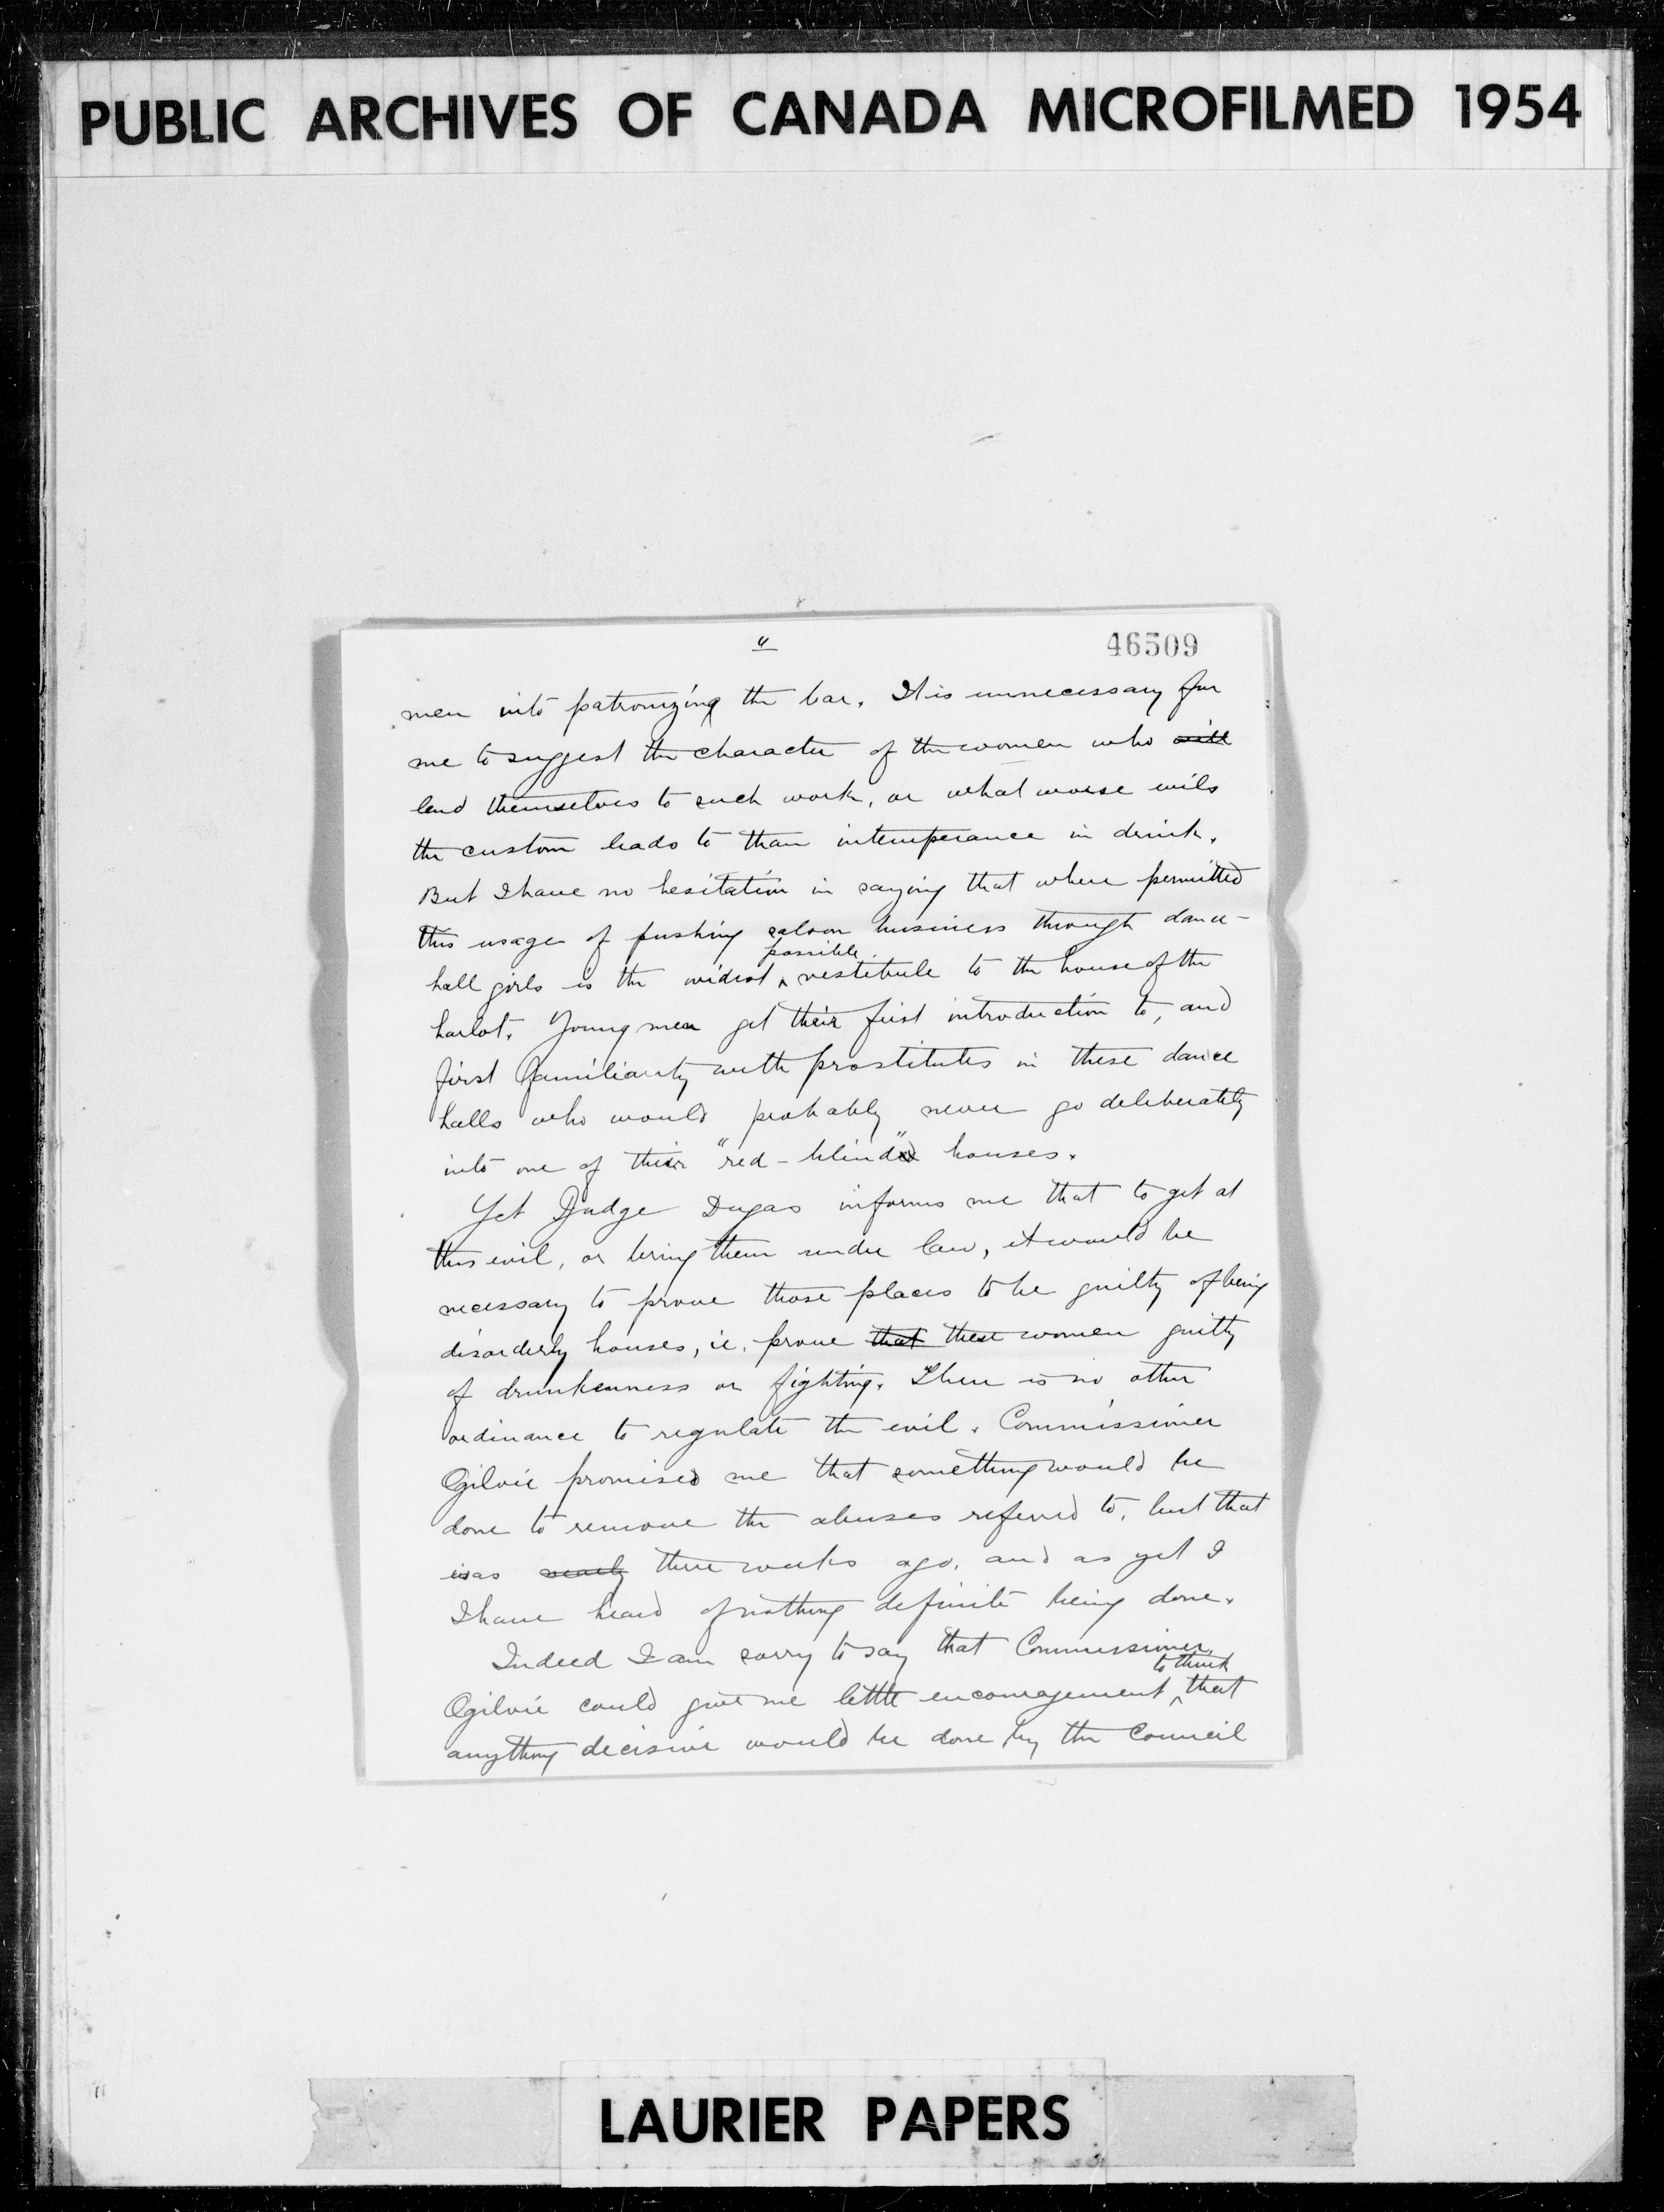 PUBLIC ARCHIVES OF CANADA MICROFILMED 1954
46509
men into patronizing the bar. It is unnecessary for
me to suggest the character of the women who will
lend themselves to such work, or what worse evils
the custom leads to than intemperance in drink.
But I have no hesitation in saying that where permitted
this usage of pushing saloon business through dance-
possible
hall girls is the widest ‸ vestibule to the house of the
harlot. Young men get their first introduction to, and
first familiarity with prostitutes in these dance
halls who would probably never go deliberately
into one of their "red-blind" houses.
Yet Judge Dugas informs me that to get at
this evil, or bring them under law, it would be
necessary to prove those places to be guilty of being
disorderly houses, ie. prove that these women guilty
of drunkenness or fighting. There is no other
ordinance to regulate the evil. Commissioner
Ogilvie promised me that something would be
done to remove the abuses referred to, but that
was nearly three weeks ago, and as yet I
I have heard of nothing definite being done.
Indeed I am sorry to say that Commissioner
to think
Ogilvie could give me little encouragement ‸ that
anything decisive would be done by the Council
LAURIER PAPERS